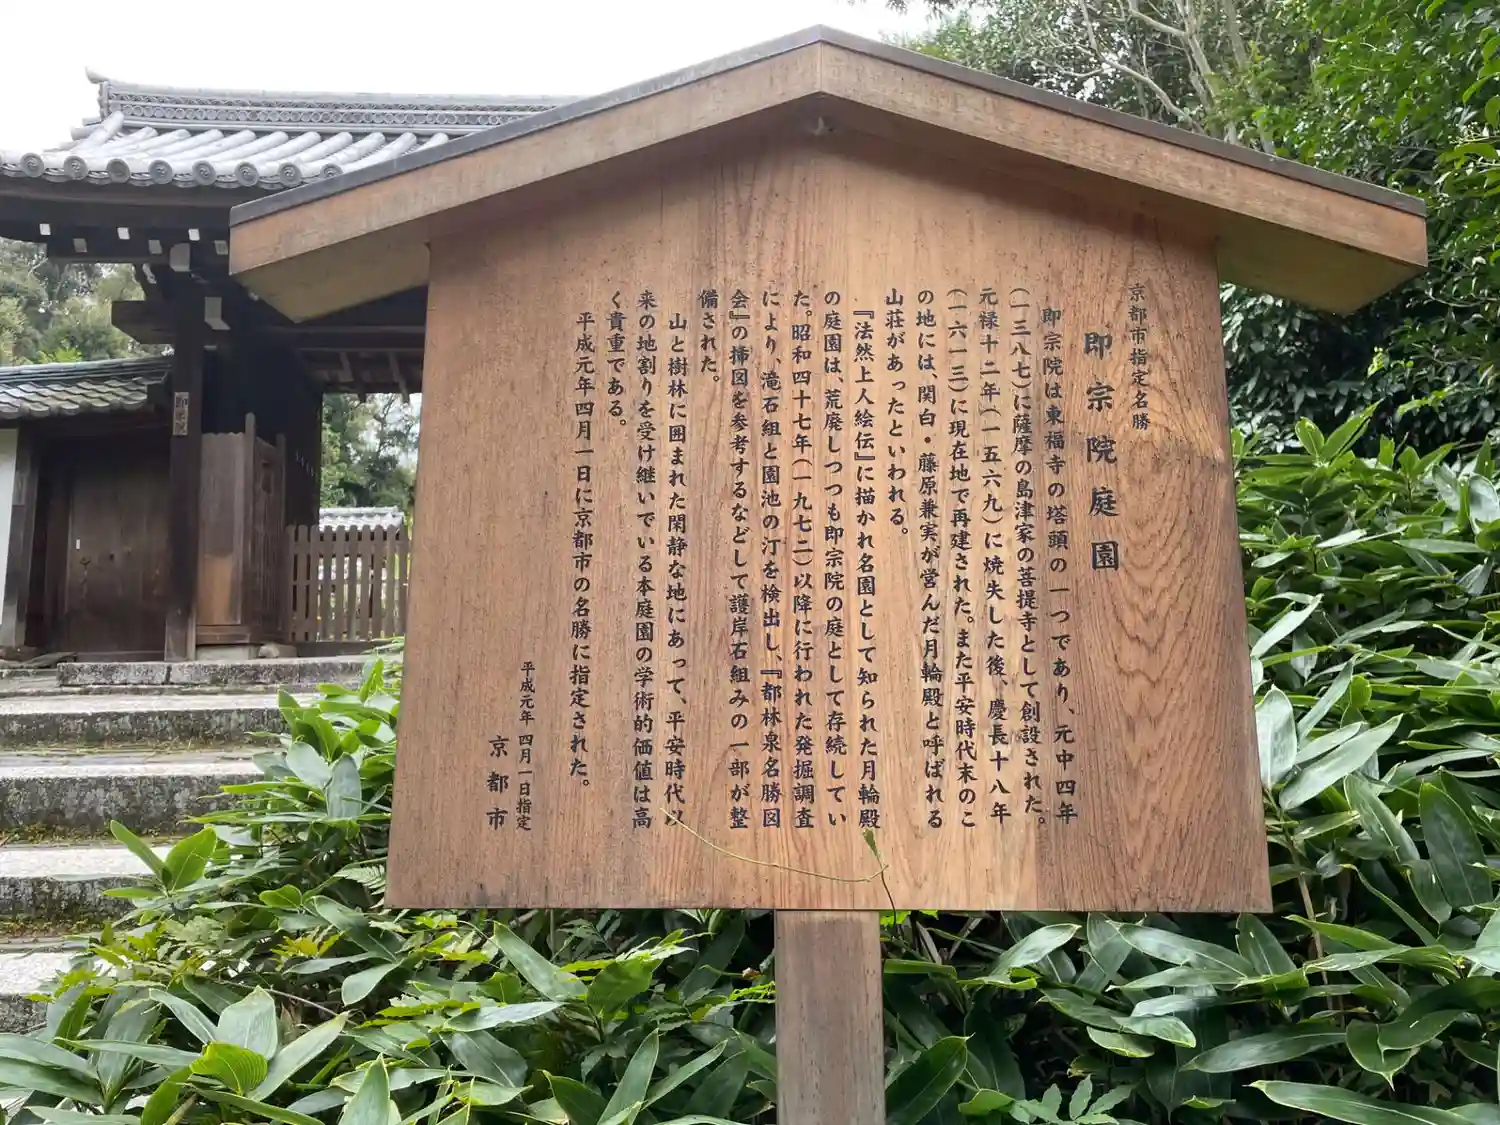 京都市指定名勝
即宗院庭園
即宗院は東福寺の塔頭の一つであり、元中四年
(一三八七)に薩摩の島津家の菩提寺として創設された。
元禄十二年(一五六九)に焼失した後、慶長十八年
(一六一三)に現在地で再建された。また平安時代末のこ
の地には、関白・藤原兼実が営んだ月輪殿と呼ばれる
山荘があったといわれる。
『法然上人絵伝』に描かれ名園として知られた月輪殿
の庭園は、荒廃しつつも即宗院の庭として存続してい
た。昭和四十七年(一九七二)以降に行われた発掘調査
により、滝石組と園池の汀を検出し、『都林泉名勝図
会』の挿図を参考するなどして護岸石組みの一部が整
備された。
山と樹林に囲まれた閑静な地にあって、平安時代以
来の地割りを受け継いでいる本庭園の学術的価値は高
く貴重である。
平成元年四月一日に京都市の名勝に指定された。
平成元年 四月一日指定
京都市